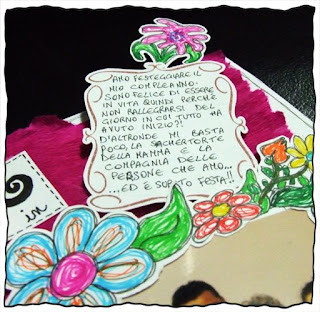 AMO FESTEGGIARE IL
MIO COMPLEANNO.
SONO FELICE DI ESSERE
IN VITA QUINDI PERCHÈ
NON RALLEGRARSI DEL
GIORNO IN CUI TUTTO HA
AVUTO INIZIO?!
D'ALTRONDE MI BASTA
POCO, LA SACHERTORTE
DELLA MAMMA E LA
COMPAGNIA DELLE
PERSONE CHE AMO...
...ED È SUBITO FESTA!!
in